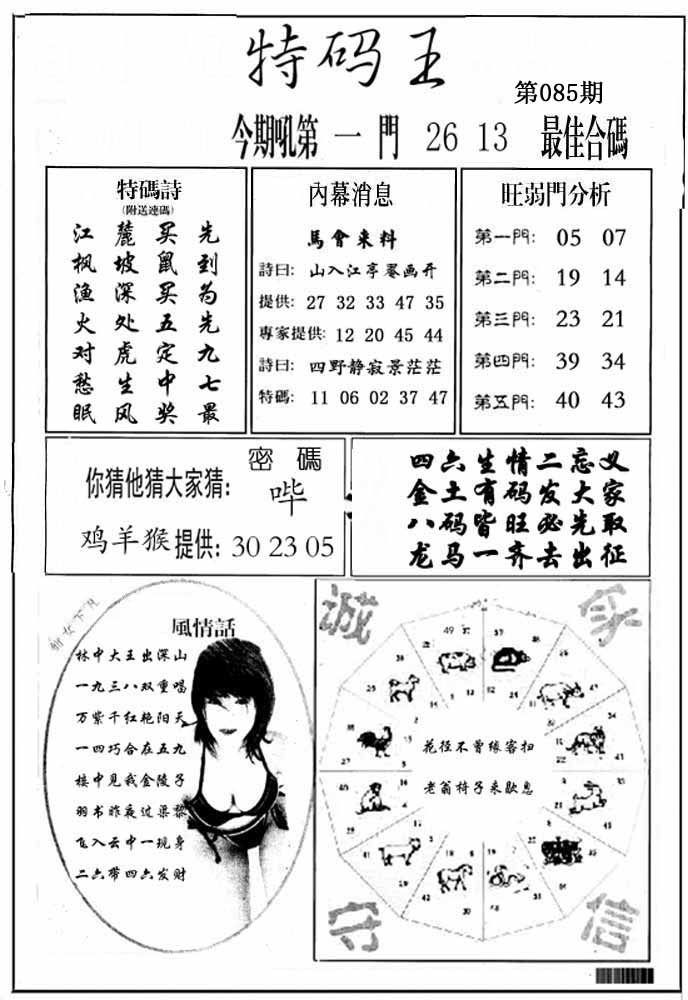 特码王
第085期
今期吼第一門 26 13 最佳合碼
特碼詩
(附送連碼)
江麓买先
枫坡鼠到
渔深买为
火处五先
对虎定九
愁生中七
眠风奖最
內幕消息
馬會来料
詩曰: 山入江亭罨画开
提供: 27 32 33 47 35
專家提供: 12 20 45 44
詩曰: 四野静寂景茫茫
特碼: 11 06 02 37 47
旺弱門分析
第一門: 05 07
第二門: 19 14
第三門: 23 21
第四門: 39 34
第五門: 40 43
密碼
你猜他猜大家猜: 哔
鸡羊猴提供: 30 23 05
四六生情二忘义
金土有码发大家
八码皆旺必先取
龙马一齐去出征
女下凡
風情話
林中大王出深山
一九三八双重唱
万紫千红艳阳天
一四巧合在五九
接中见我金陵子
羽书昨夜过渠黎
飞入云中一现身
二六带四六发财
诚
守
信
花径不曾缘客扫
老翁椅子来歇息